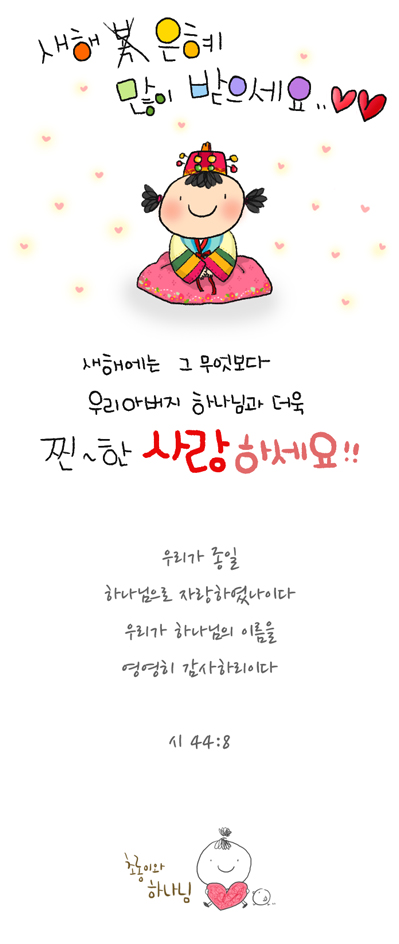 새해 福 은혜
많이 받으세요..
새해에는 그 무엇보다
우리아버지 하나님과 더욱
찐~한 사랑하세요!!
우리가 종일
하나님으로 자랑하였나이다
우리가 하나님의 이름을
영영히 감사하리이다
시 44:8
초롱이와
하나님